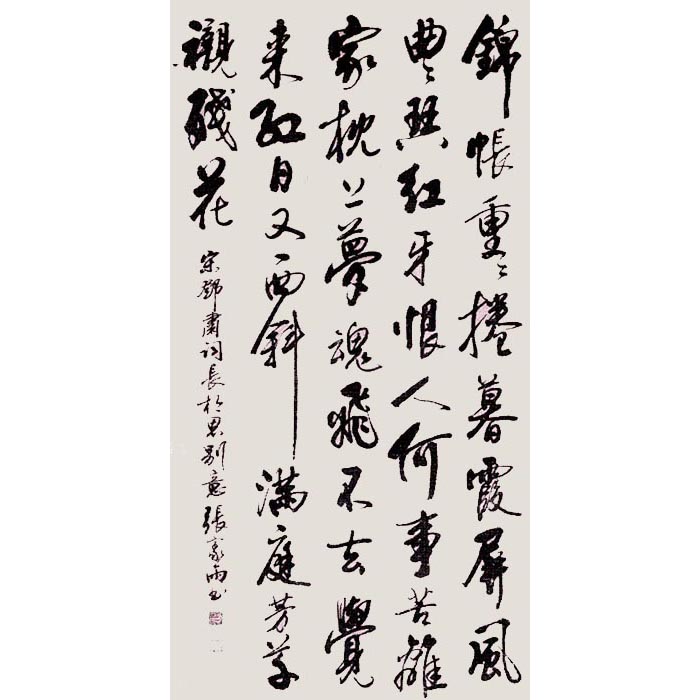 錦帳重〻捲暮霞屏風
曲〻紅牙恨人何事苦離
家枕上夢魂飛不去覺
来紅日又西斜滿庭芳草
襯殘花
宋鄧肅詞長於思別意張雨书